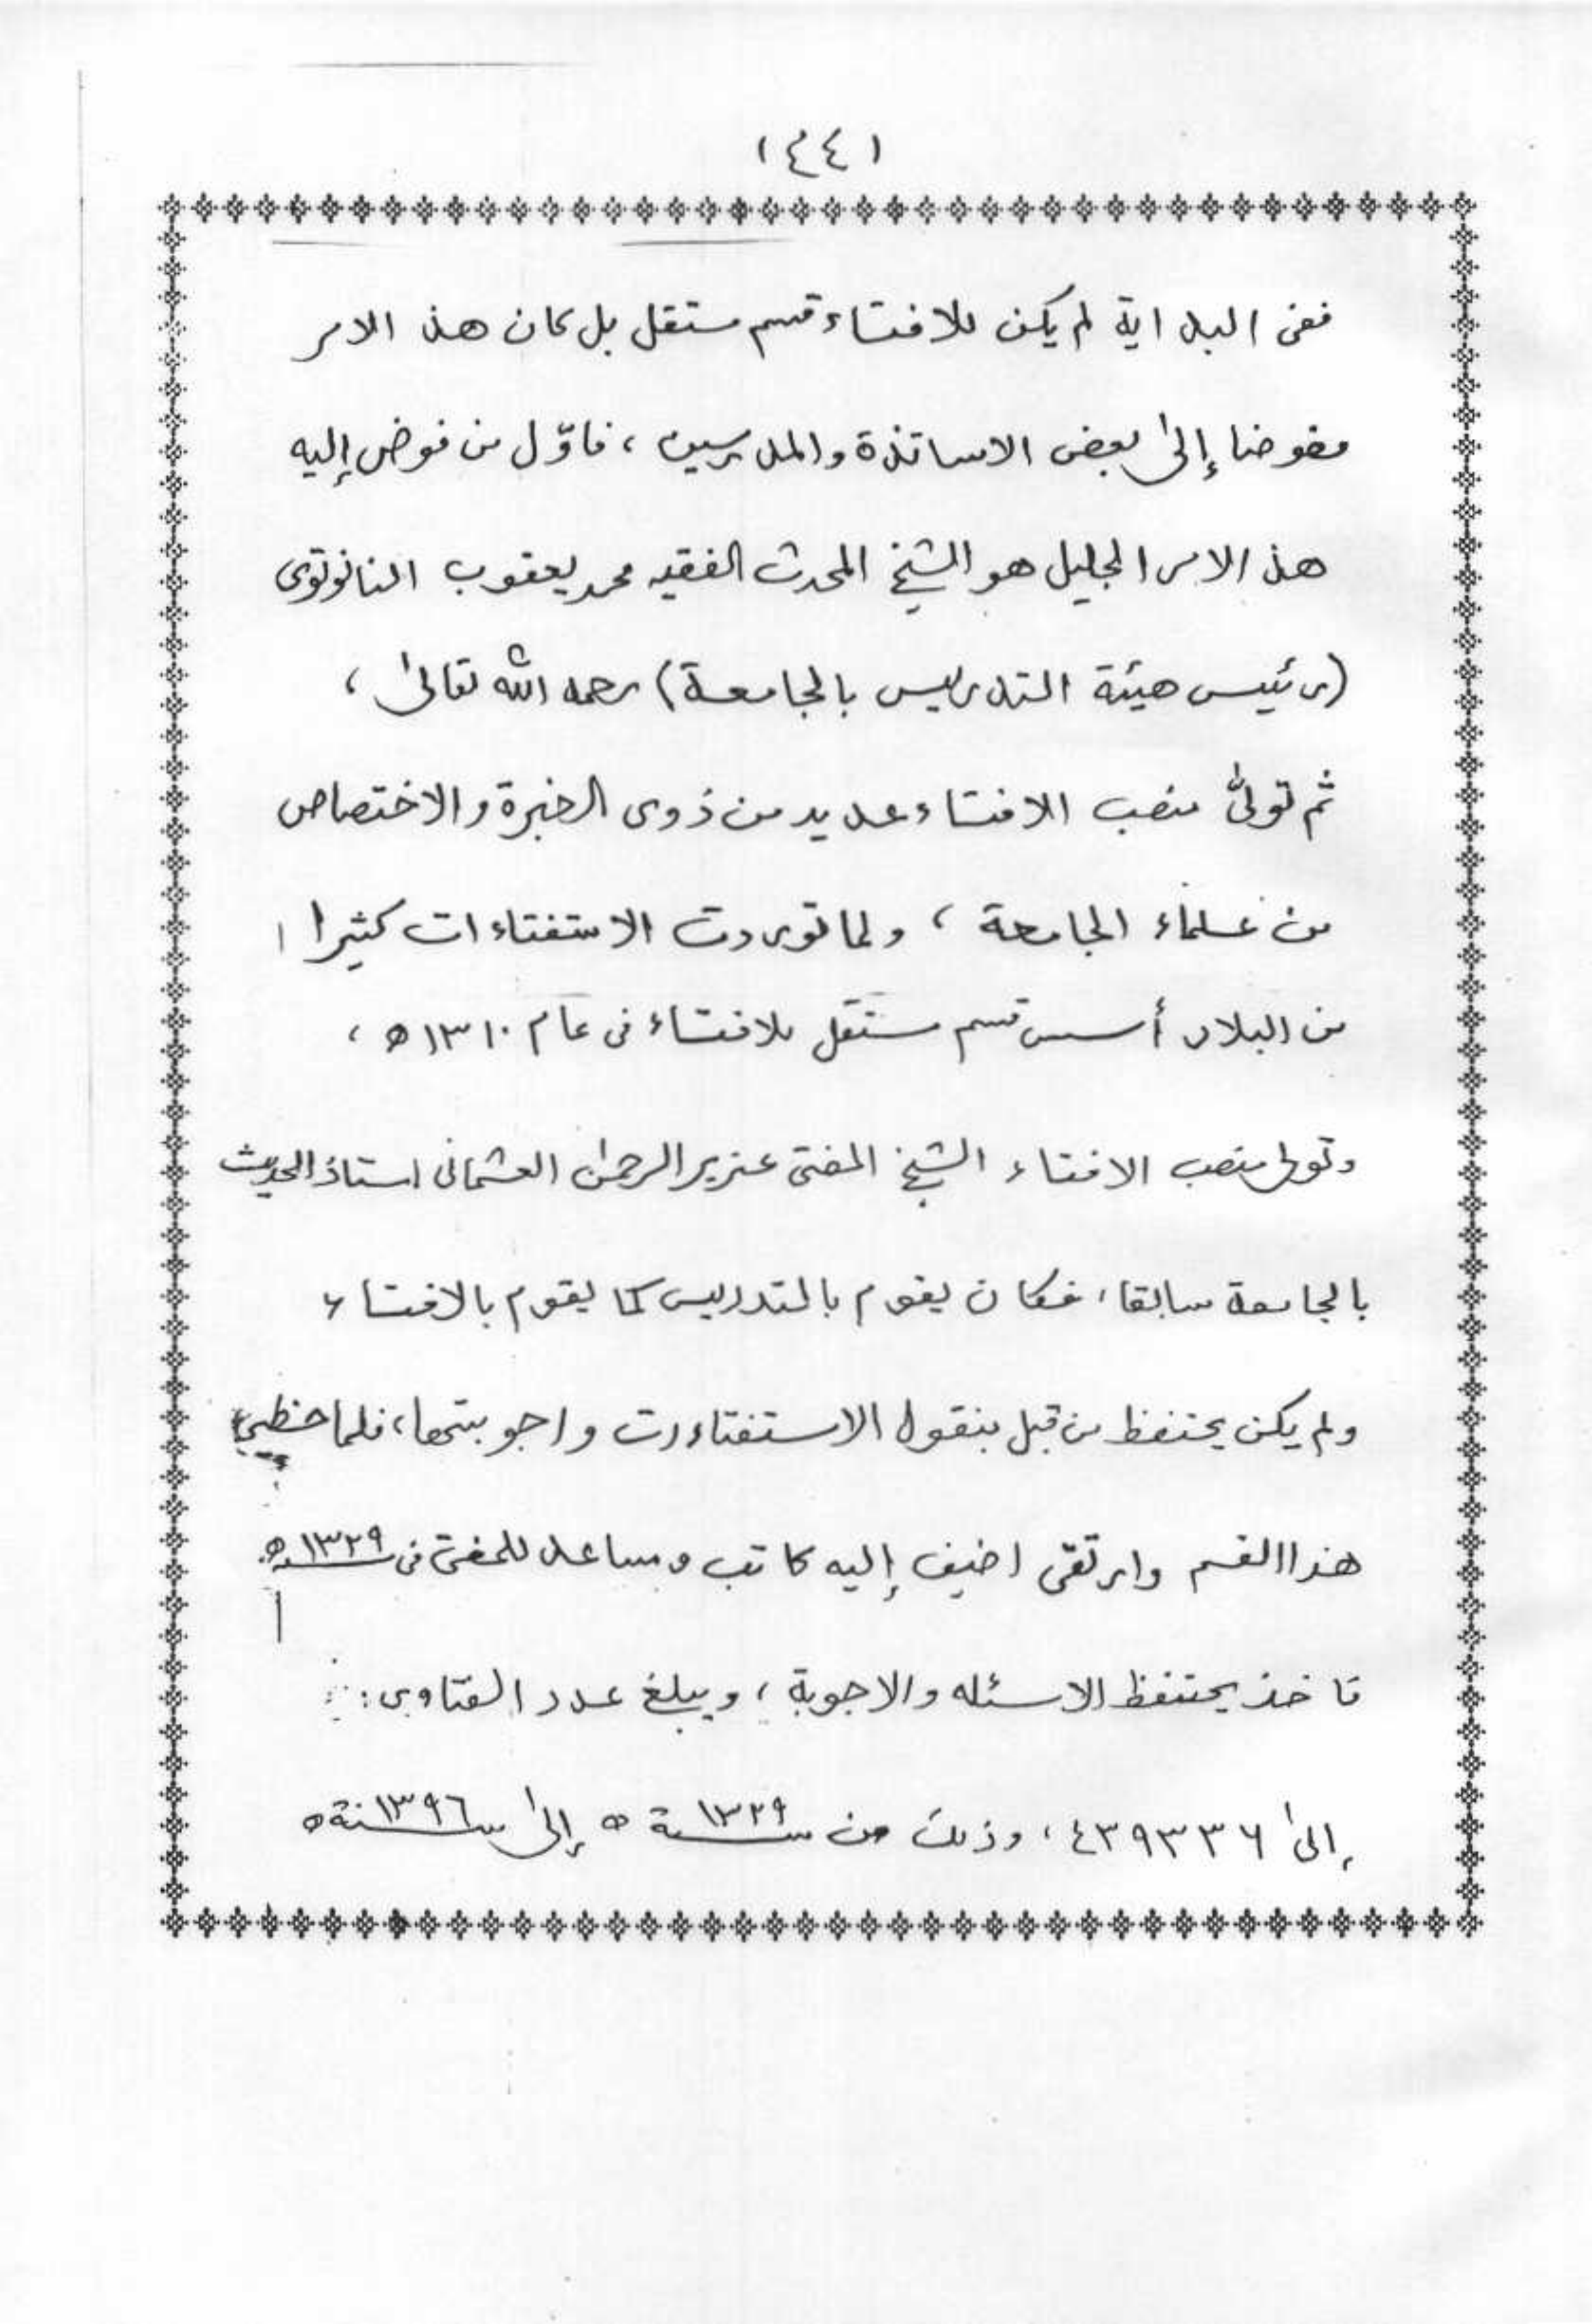 (٤٤)
ففى البداية لم يكن للافتاء قسم مستقل بل كان هذا الامر
مفوضا إلى بعض الاساتذة والمدرسين، فاوّل من فوض إليه
هذا الامر الجليل هو الشيخ المحدث الفقيه محمد يعقوب النانوتوى
(رئيس هيئة التدريس بالجامعة) رحمه الله تعالىٰ،
ثم تولىٰ منصب الافتاء عديد من ذوى الخبرة والاختصاص
من علماء الجامعة، ولما توردت الاستفتاءات كثيرا
من البلاد أسس قسم مستقل للافتاء فى عام ١٣١٠ه،
وتولى منصب الافتاء الشيخ المفتى عزيز الرحمن العثمانى استاذ الحديث
بالجامعة سابقا، فكان يقوم بالتدريس كما يقوم بالافتاء
ولم يكن يحتفظ من قبل بنقول الاستفتاءات واجوبتها، فلما حظى
هذا القسم وارتقى اضيف إليه كاتب ومساعد للمفتى فى ١٣٢٩ه
فاخذ يحتفظ الاسئله والاجوبة، ويبلغ عدد الفتاوى:
إلىٰ ٤٣٩٣٣٦، وذلك من سنة ١٣٢٩ه إلىٰ سنة ١٣٩٦ه